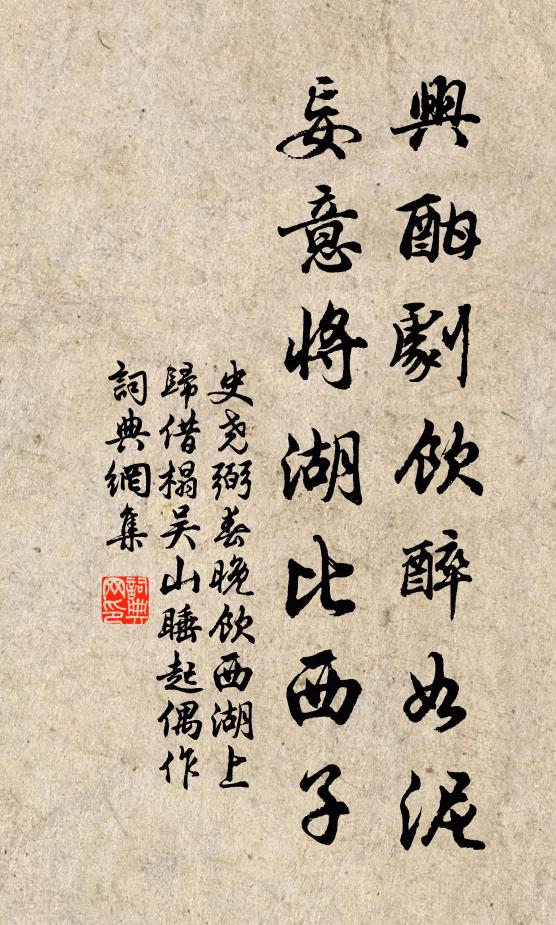 興酣劇飲醉如泥
妄意將湖比西子
史尧弼春晚飲西湖上
歸借榻吴山睡起偶作
詞典網集
詞典
网印